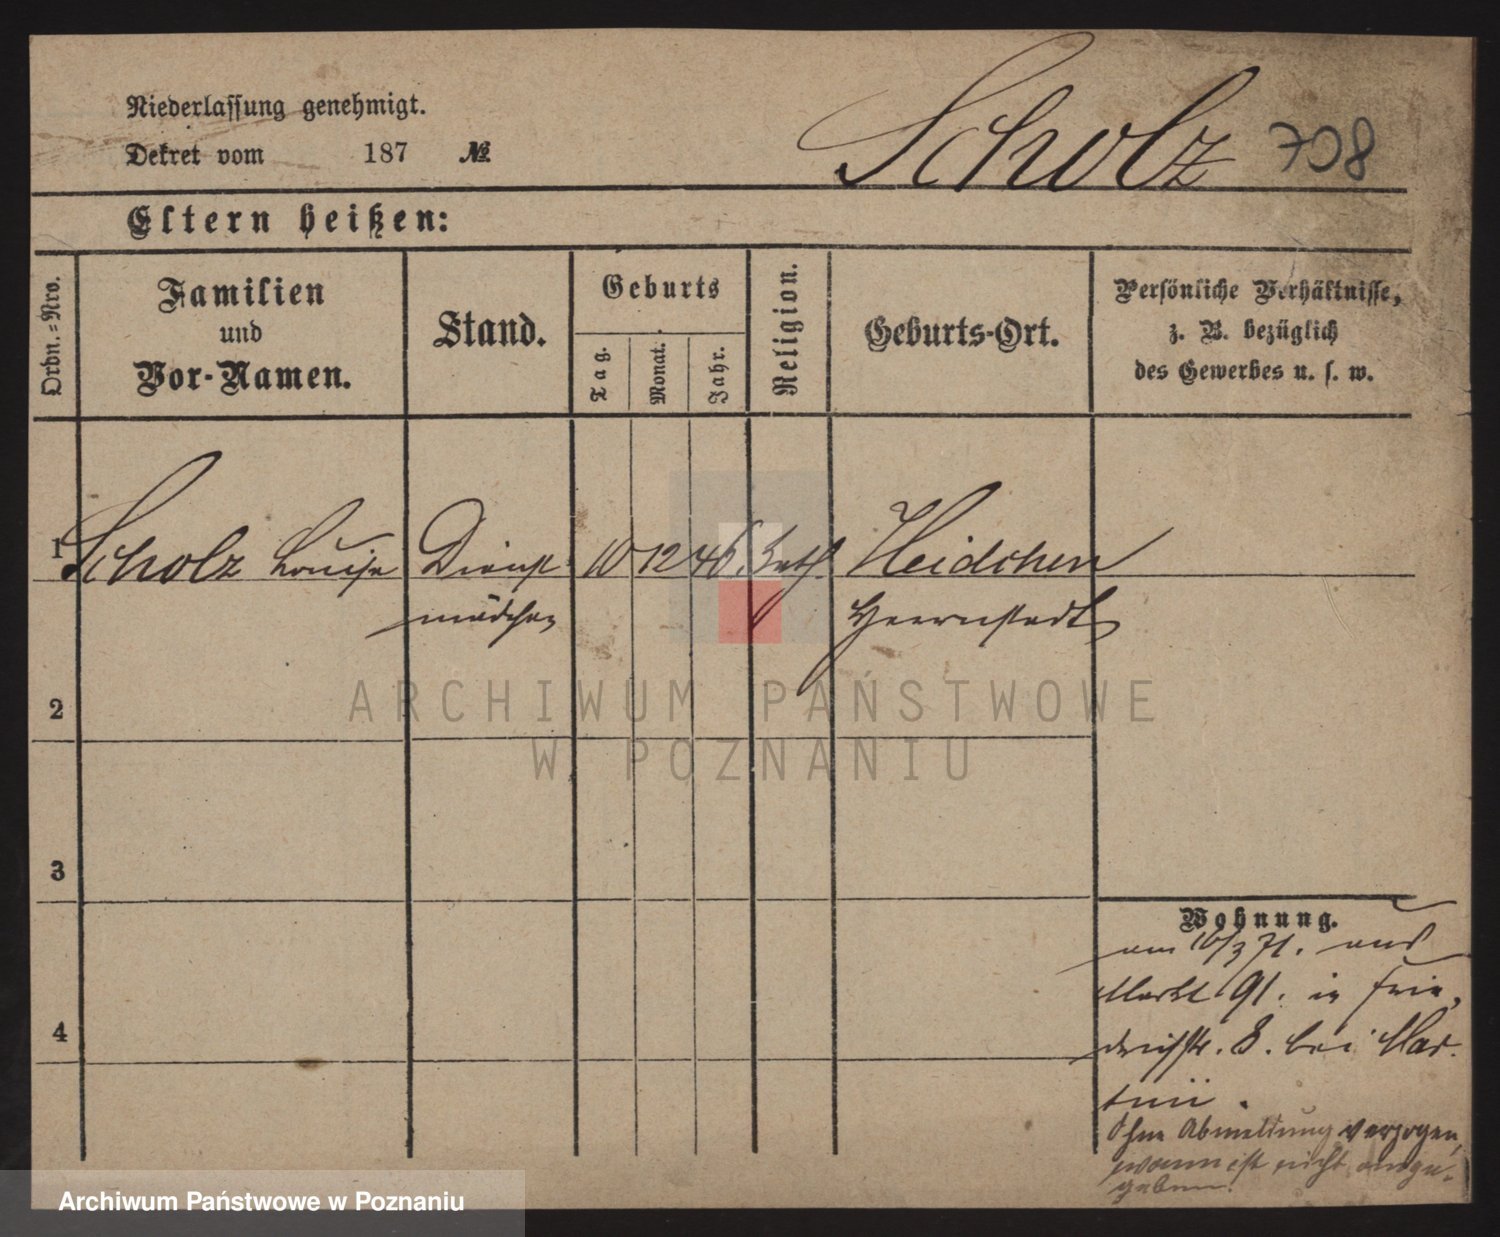 Niederlassung genehmigt.
Dekret vom 187 №
Scholz 708
Eltern heißen:
Ordn.=Nro.
Familien
und
Vor-Namen.
Stand.
Geburts
Tag.
Monat.
Jahr.
Religion.
Geburts-Ort.
Persönliche Verhältnisse,
z. B. bezüglich
des Gewerbes u. s. w.
1 Scholz Louise Dienst 10 12 46. kath. Heidchen
mädchen Herrnstadt
2
3
4
Wohnung.
am 16/3 71. aus
Markt 91. in Frie,
drichstr. 8. bei Mar
tini.
Ohne Abmeldung verzogen,
wann ist nicht ange-
geben.
ARCHIWUM PAŃSTWOWE
W POZNANIU
Archiwum Państwowe w Poznaniu